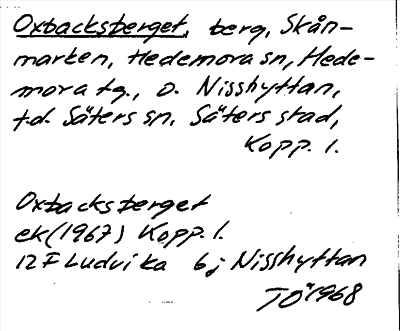 Oxbacksberget, berg, Skån-
marken, Hedemora sn, Hede-
mora tg., o. Nisshyttan,
t.d. Säters sn. Säters stad,
Kopp. l.
Oxbacksberget
ek (1967) Kopp. l.
12 F Ludvika 6 j Nisshyttan
TÖ 1968